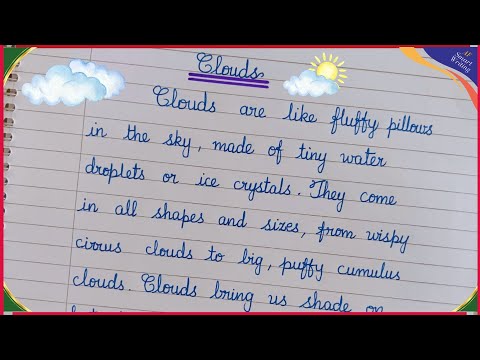 AF
Smart
Writing
Clouds
Clouds are like fluffy pillows
in the sky, made of tiny water
droplets or ice crystals. They come
in all shapes and sizes, from wispy
cirrus clouds to big, puffy cumulus
clouds. Clouds bring us shade on